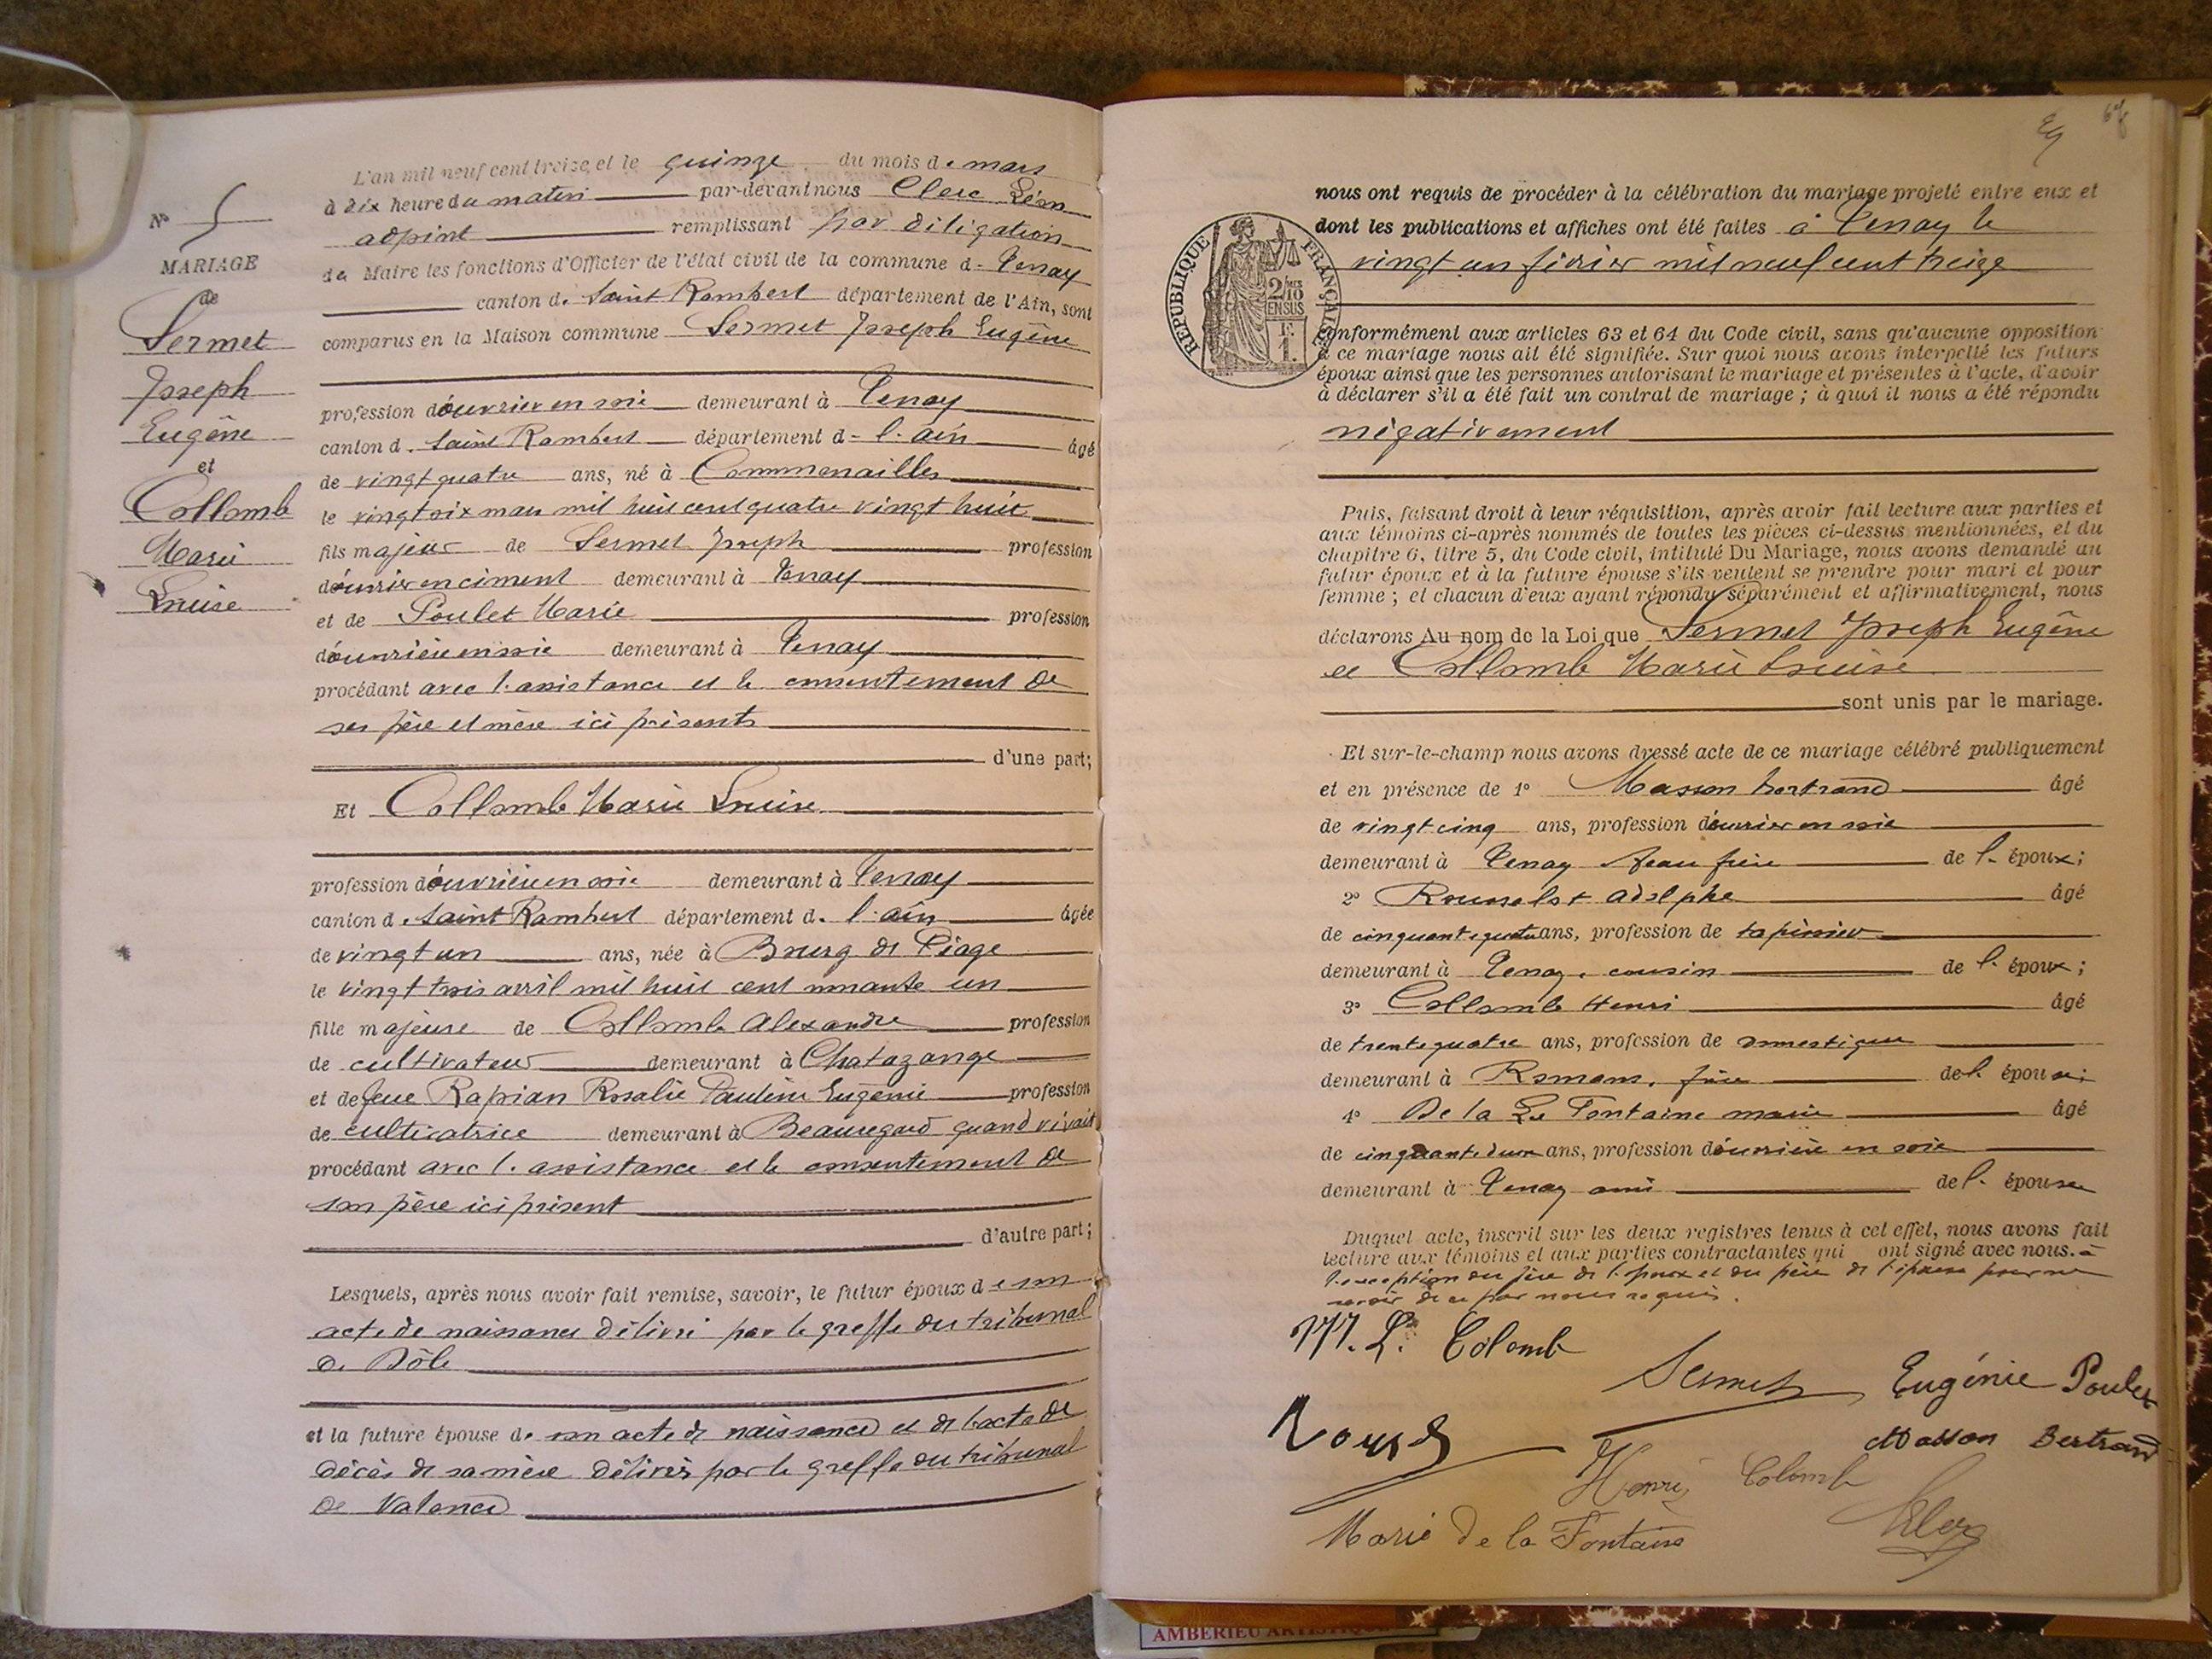 N° 5
MARIAGE
de
Sermet
Joseph
Eugène
et
Collomb
Marie
Louise
L'an mil neuf cent treize, et le quinze du mois de mars
à dix heure du matin par-devant nous Clerc Léon
adjoint remplissant par déligation
du Maire les fonctions d'Officier de l'état civil de la commune de Tenay
canton de Saint Rambert département de l'Ain, sont
comparus en la Maison commune Sermet Joseph Eugène
profession d'ouvrier en soie demeurant à Tenay
canton de Saint Rambert département de l'ain âgé
de vingt quatre ans, né à Commenailles
le vingt six mars mil huit cent quatre vingt huit
fils majeur de Sermet Joseph profession
d'ouvrier en ciment demeurant à Tenay
et de Poulet Marie profession
d'ouvrière en soie demeurant à Tenay
procédant avec l'assistance et le consentement de
ses père et mère ici présents
d'une part;
Et Collomb Marie Louise
profession d'ouvrière en soie demeurant à Tenay
canton de Saint Rambert département de l'ain âgée
de vingt un ans, née à Bourg de Péage
le vingt trois avril mil huit cent nonante un
fille majeure de Collomb Alexandre profession
de cultivateur demeurant à Chatazange
et de feue Rapian Rosalie Pauline Eugénie profession
de cultivatrice demeurant à Beauregard quand vivait
procédant avec l'assistance et le consentement de
son père ici présent
d'autre part;
Lesquels, après nous avoir fait remise, savoir, le futur époux de son
acte de naissance délivré par le greffe du tribunal
de Dôle
et la future épouse de son acte de naissance et de l'acte de
décès de sa mère délivrés par le greffe du tribunal
de Valence
nous ont requis de procéder à la célébration du mariage projeté entre eux et
dont les publications et affiches ont été faites à Tenay le
vingt un février mil neuf cent treize
RÉPUBLIQUE FRANÇAISE
2/10 EN SUS
1 F.
conformément aux articles 63 et 64 du Code civil, sans qu'aucune opposition
à ce mariage nous ait été signifiée. Sur quoi nous avons interpellé les futurs
époux ainsi que les personnes autorisant le mariage et présentes à l'acte, d'avoir
à déclarer s'il a été fait un contrat de mariage ; à quoi il nous a été répondu
négativement
Puis, faisant droit à leur réquisition, après avoir fait lecture aux parties et
aux témoins ci-après nommés de toutes les pièces ci-dessus mentionnées, et du
chapitre 6, titre 5, du Code civil, intitulé Du Mariage, nous avons demandé au
futur époux et à la future épouse s'ils veulent se prendre pour mari et pour
femme ; et chacun d'eux ayant répondu séparément et affirmativement, nous
déclarons Au nom de la Loi que Sermet Joseph Eugène
et Collomb Marie Louise
sont unis par le mariage.
Et sur-le-champ nous avons dressé acte de ce mariage célébré publiquement
et en présence de 1° Masson bertrand âgé
de vingt cinq ans, profession d'ouvrier en soie
demeurant à Tenay beau frère de l'époux;
2° Rousselot Adolphe âgé
de cinquante quatre ans, profession de tapissier
demeurant à Tenay, cousin de l'époux;
3° Collomb Henri âgé
de trente quatre ans, profession de domestique
demeurant à Romans, frère de l'épouse;
4° De la La Fontaine marie âgé
de cinquante deux ans, profession d'ouvrière en soie
demeurant à Tenay amie de l'épouse
Duquel acte, inscrit sur les deux registres tenus à cet effet, nous avons fait
lecture aux témoins et aux parties contractantes qui ont signé avec nous. à
l'exception du père de l'époux et du père de l'épouse pour ne
savoir de ce par nous requis.
M. L. Colomb
Sermet
Eugénie Poulet
Masson Bertrand
Henri Colomb
Marie de la Fontaine
Clerc
AMBERIEU ARTISTIQUE